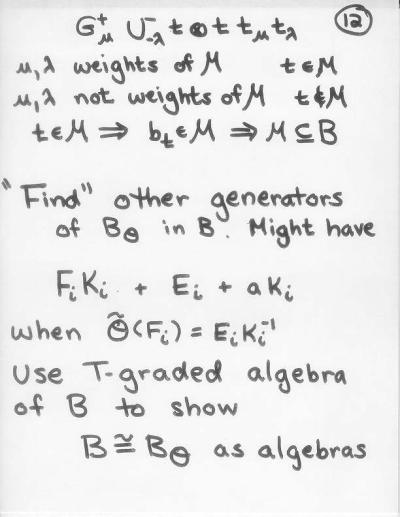 12
G⁺_μ U⁻_{-λ} t ⊗ t t_μ t_λ
μ, λ weights of M t ∈ M
μ, λ not weights of M t ∉ M
t ∈ M ⇒ b_t ∈ M ⇒ M ⊆ B
"Find" other generators
of B_θ in B. Might have
F_i K_i + E_i + a K_i
when Θ̃(F_i) = E_i K_i⁻¹
Use T-graded algebra
of B to show
B ≅ B_θ as algebras